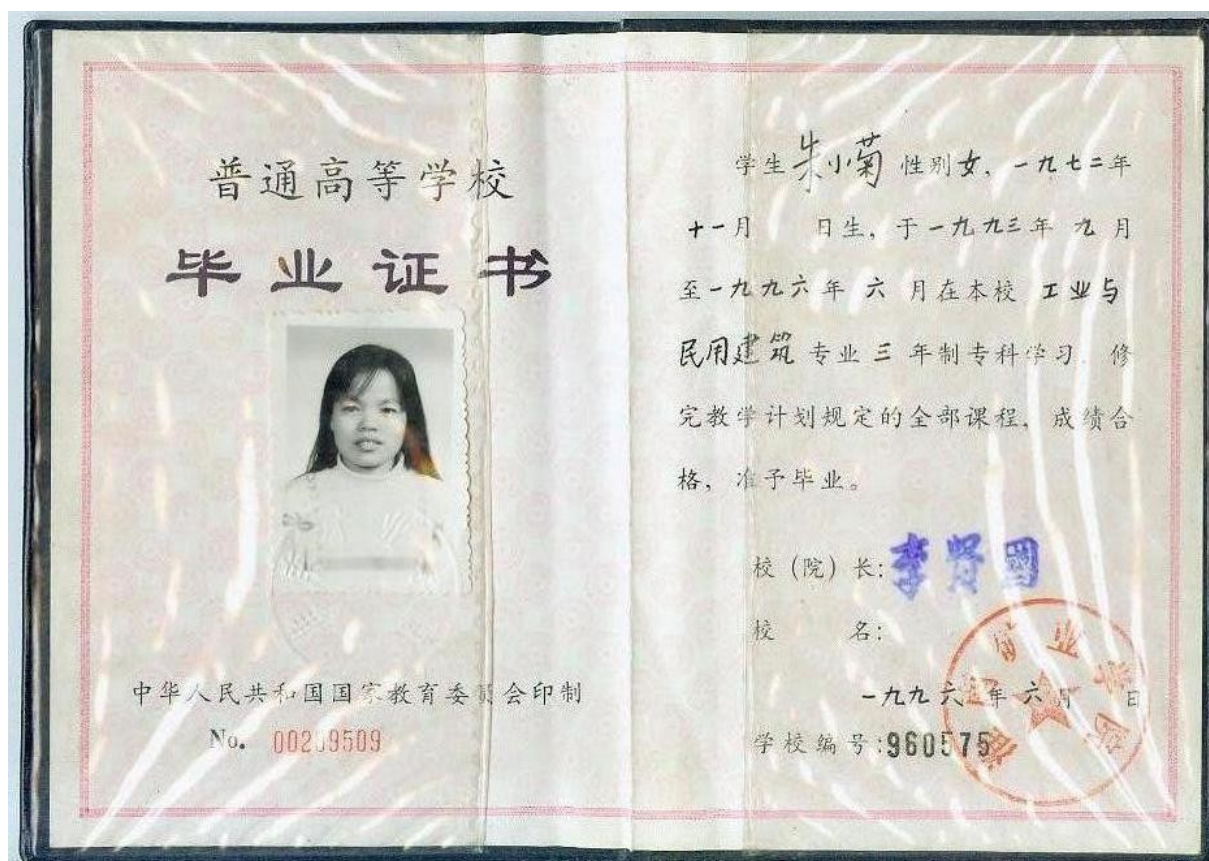 普通高等学校
毕业证书
中华人民共和国国家教育委员会印制
No. 00209509
学生朱小菊 性别女，一九七二年
十一月 日生，于一九九三年 九 月
至一九九六年 六 月在本校 工业与
民用建筑 专业 三 年制专科学习 修
完教学计划规定的全部课程，成绩合
格，准予毕业。
校（院）长：李贤国
校 名：
一九九六年 六月 日
学校编号：960575
矿业学院